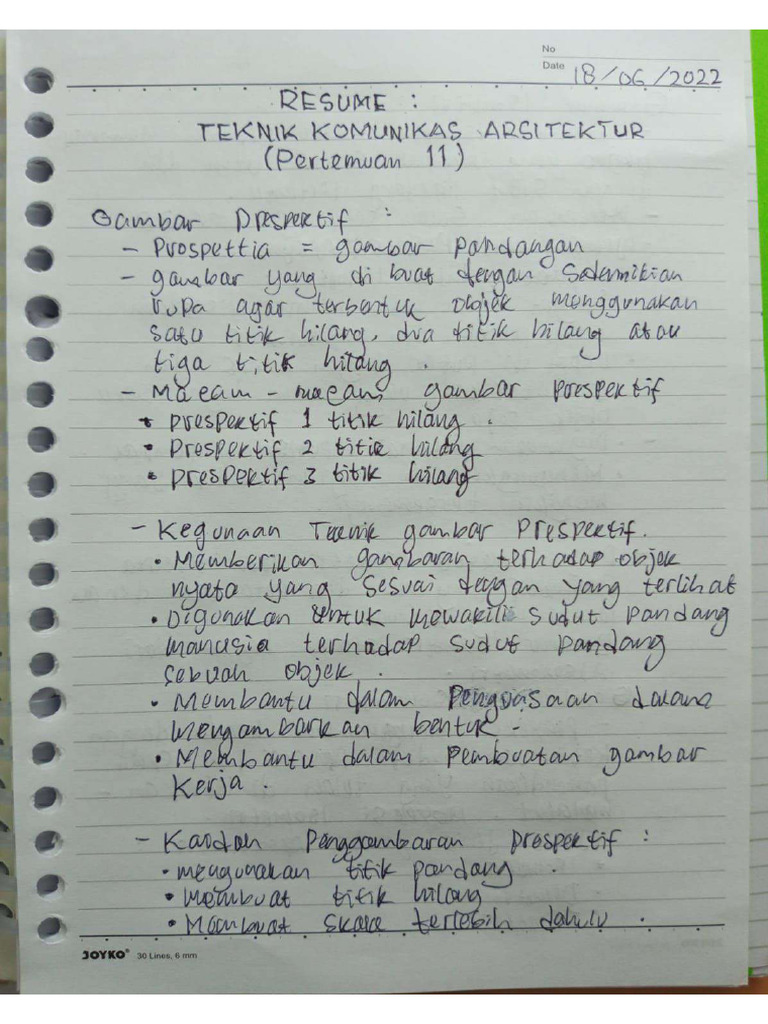 No
Date 18/06/2022
RESUME :
TEKNIK KOMUNIKAS ARSITEKTUR
(Pertemuan 11)
Gambar Prespektif :
- Prospettia = gambar pandangan
- gambar yang di buat dengan Sedemikian
rupa agar terbentuk objek menggunakan
satu titik hilang, dua titik hilang atau
tiga titik hilang .
- Macam - macam gambar prespektif
• prespektif 1 titik hilang .
• Prespektif 2 titik hilang
• presPektif 3 titik hilang
- Kegunaan Teknik gambar Prespektif.
• Memberikan gambaran terhadap objek
nyata yang sesuai dengan yang terlihat
• Digunakan untuk mewakili sudut pandang
manusia terhadap sudut pandang
sebuah objek .
• Membantu dalam Penguasaan dalam
mengambarkan bentuk .
• Membantu dalam pembuatan gambar
Kerja .
- Kaidah Penggambaran prespektif :
• mengunakan titik pandang .
• membuat titik hilang
• Membuat skala terlebih dahulu .
JOYKO® 30 Lines, 6 mm